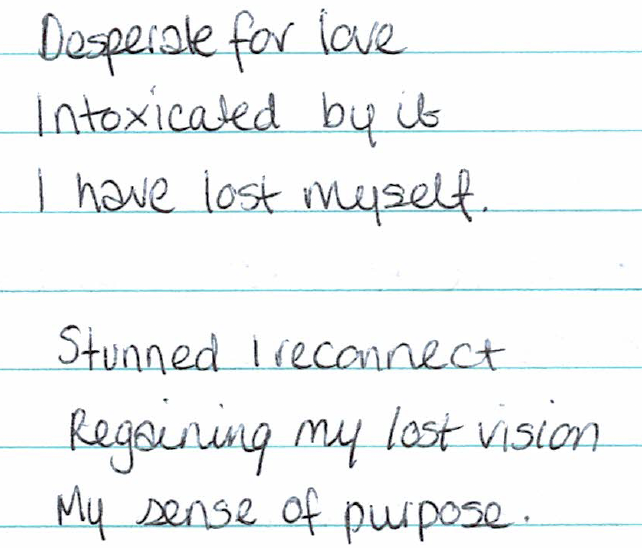 Desperate for love
Intoxicated by it
I have lost myself.
Stunned I reconnect
Regaining my lost vision
My sense of purpose.